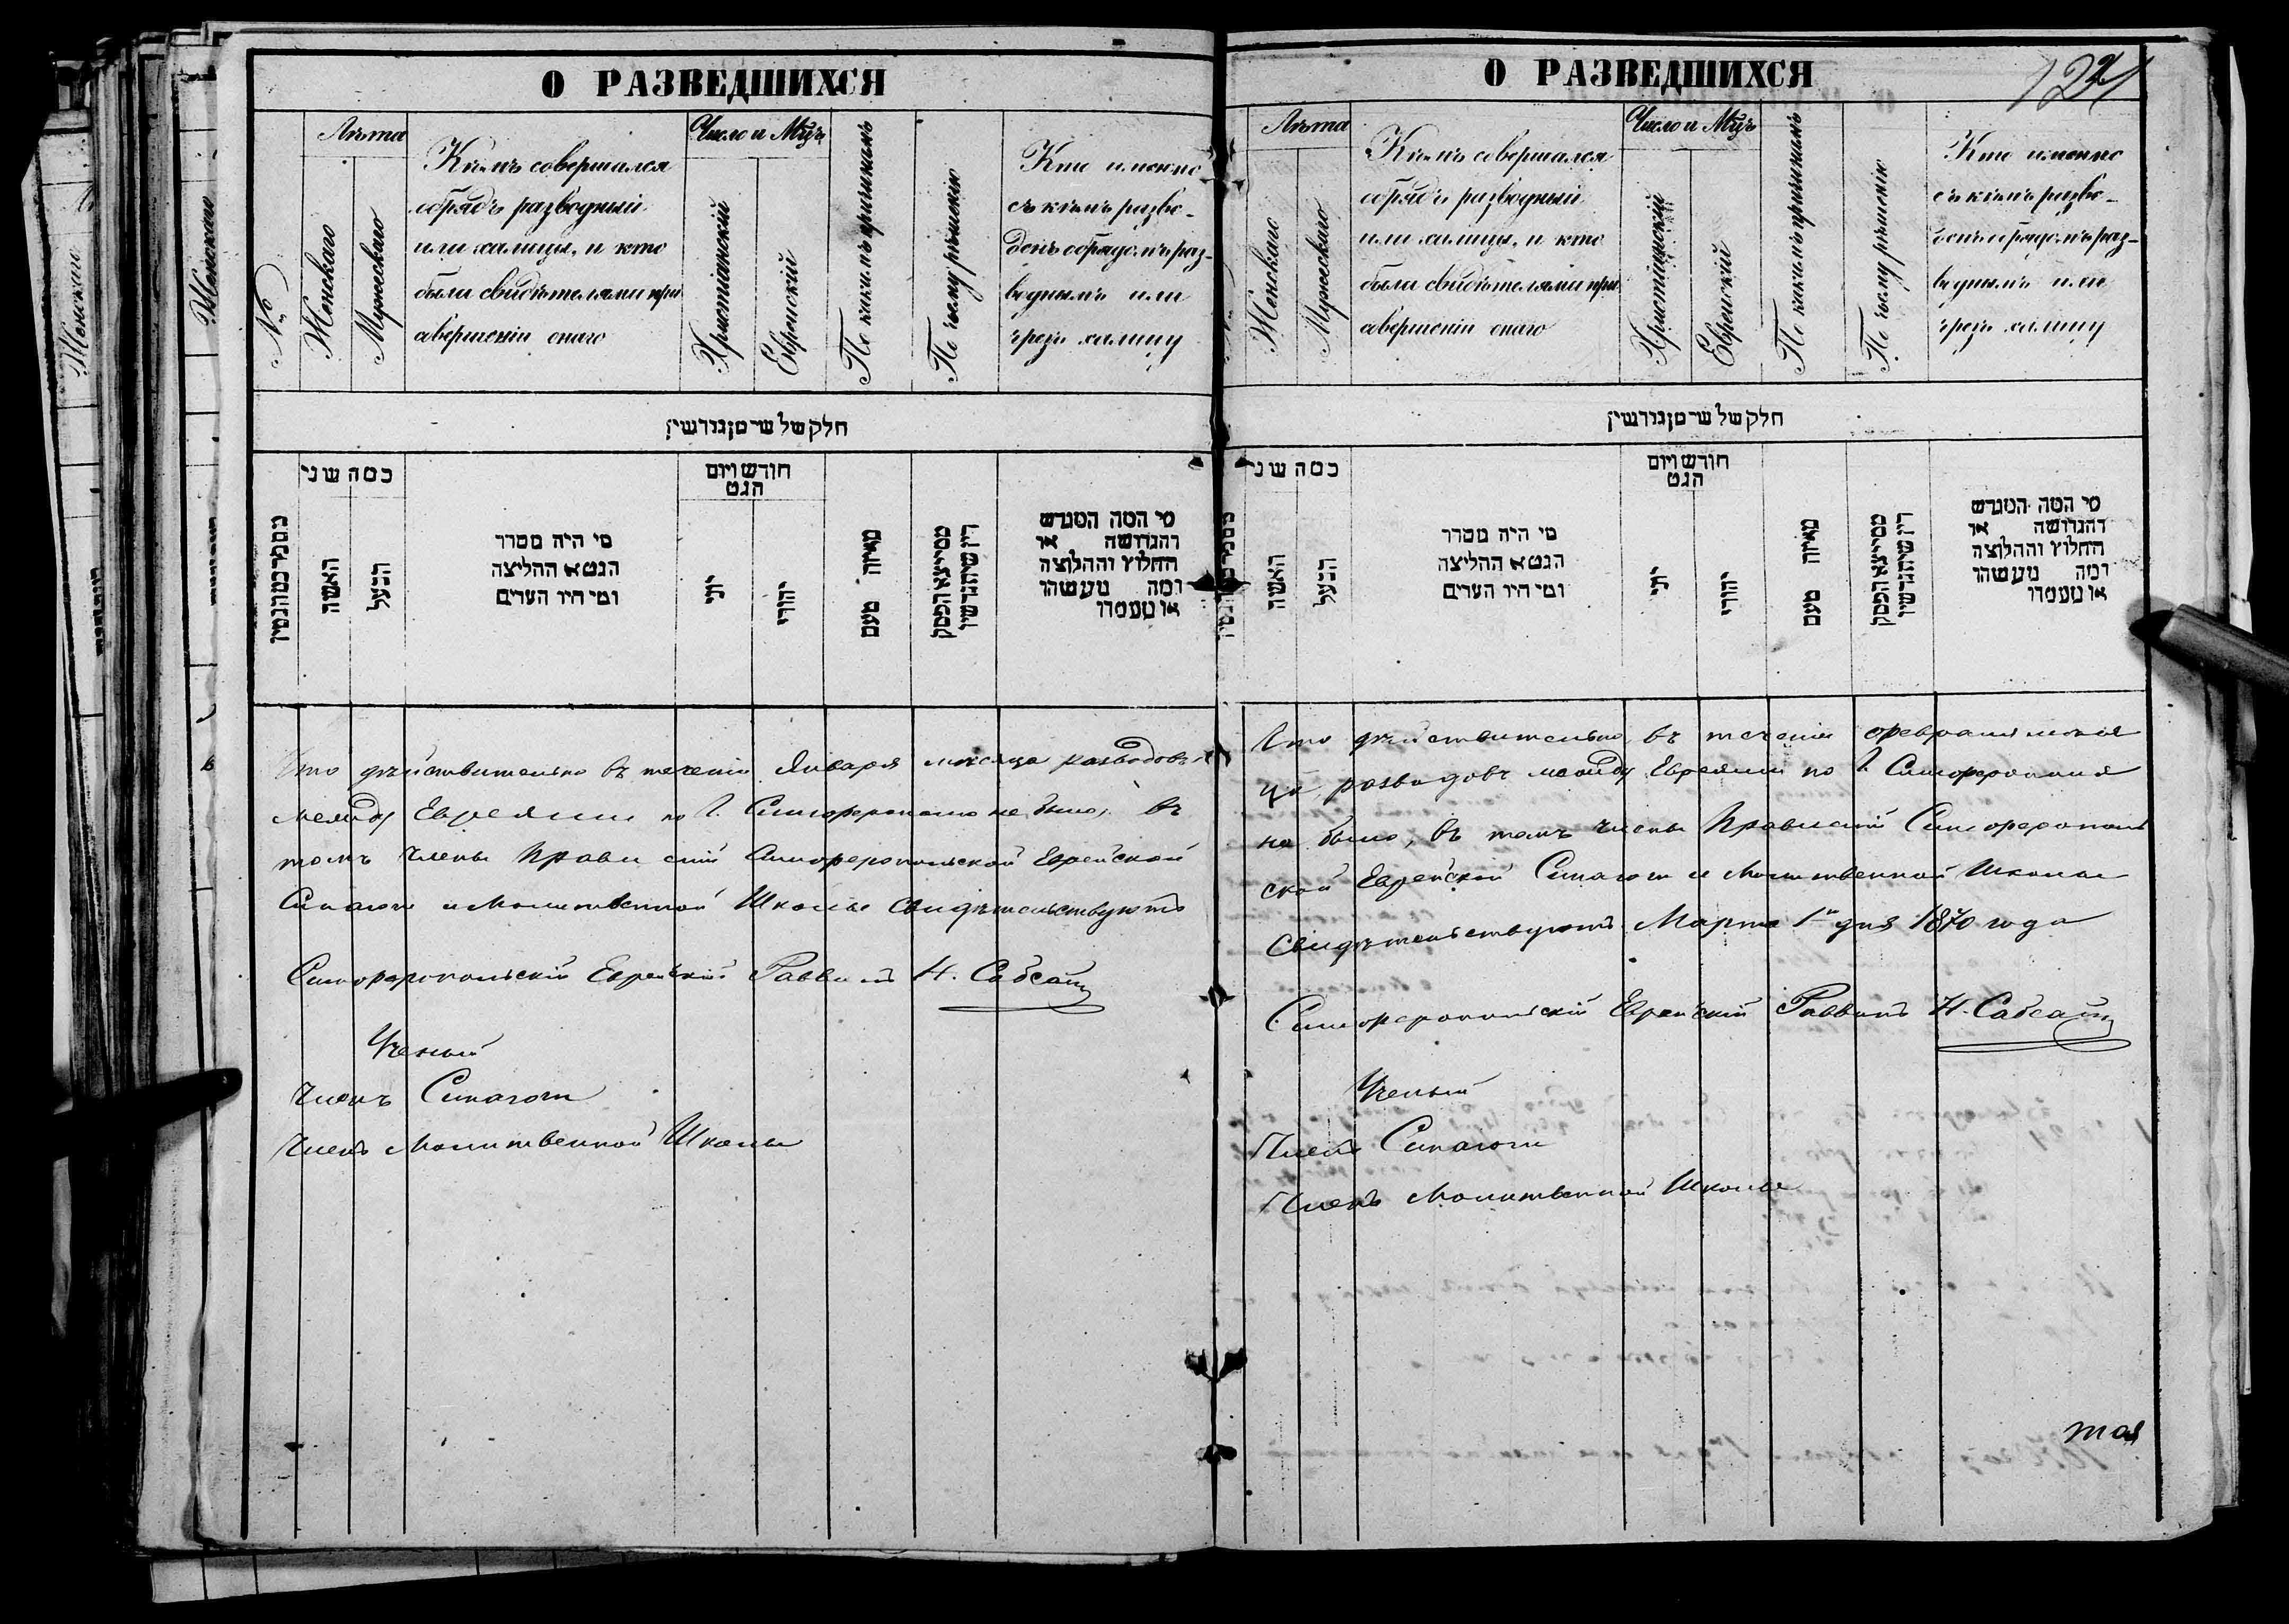 О РАЗВЕДШИХСЯ
№
Лѣта
Женскаго
Мужескаго
Кѣмъ совершался
обрядъ разводный
или халицы, и кто
были свидѣтелями при
совершеніи онаго
Число и Мѣц:
Христіанскій
Еврейскій
По какимъ причинамъ
По чьему рѣшенію
Кто именно
съ кѣмъ разве-
денъ обрядомъ раз-
воднымъ или
чрезъ халицу
חלק של שטמן גורשין
כמה שני
האשה
הבעל
מי היה מסדר
הגט או החליצה
ומי היו העדים
חודש ויום
הגט
יוני
יהודי
מאיזה טעם
מי המה המגרש
והגרושה או
החלוץ והחלוצה
ומה מעשהו
או מעמדו
Что дѣйствительно въ теченіи Января мѣсяца разводовъ
между Евреями по Г. Симферополю не было, въ
томъ члены Правленій Симферопольской Еврейской
Синагоги и Молитвенной Школы свидѣтельствуютъ
Симферопольскій Еврейскій Раввинъ Н. Сабсай
Ученый
Членъ Синагоги
Членъ Молитвенной Школы
О РАЗВЕДШИХСЯ
Лѣта
Женскаго
Мужескаго
Кѣмъ совершался
обрядъ разводный
или халицы, и кто
были свидѣтелями при
совершеніи онаго
Число и Мѣц:
Христіанскій
Еврейскій
По какимъ причинамъ
По чьему рѣшенію
Кто именно
съ кѣмъ разве-
денъ обрядомъ раз-
воднымъ или
чрезъ халицу
חלק של שטמן גורשין
כמה שני
האשה
הבעל
מי היה מסדר
הגט או החליצה
ומי היו העדים
חודש ויום
הגט
יוני
יהודי
מאיזה טעם
מי המה המגרש
והגרושה או
החלוץ והחלוצה
ומה מעשהו
או מעמדו
Что дѣйствительно въ теченіи Февраля мѣся
ца разводовъ между Евреями по Г. Симферополя
не было, въ томъ члены Правленій Симферополь
ской Еврейской Синагоги и Молитвенной Школы
Свидѣтельствуютъ Марта 1го дня 1870 года
Симферопольскій Еврейскій Раввинъ Н. Сабсай
Ученый
Членъ Синагоги
Членъ Молитвенной Школы